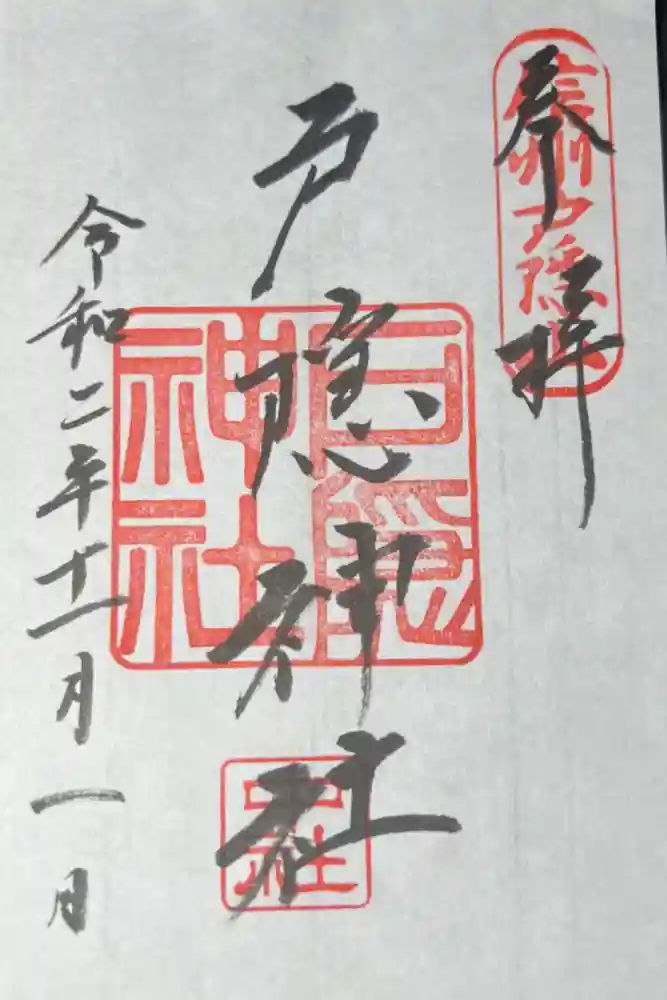 奉拝
信州戸隠
戸隠神社
戸隠神社
中社
令和二年十一月一日